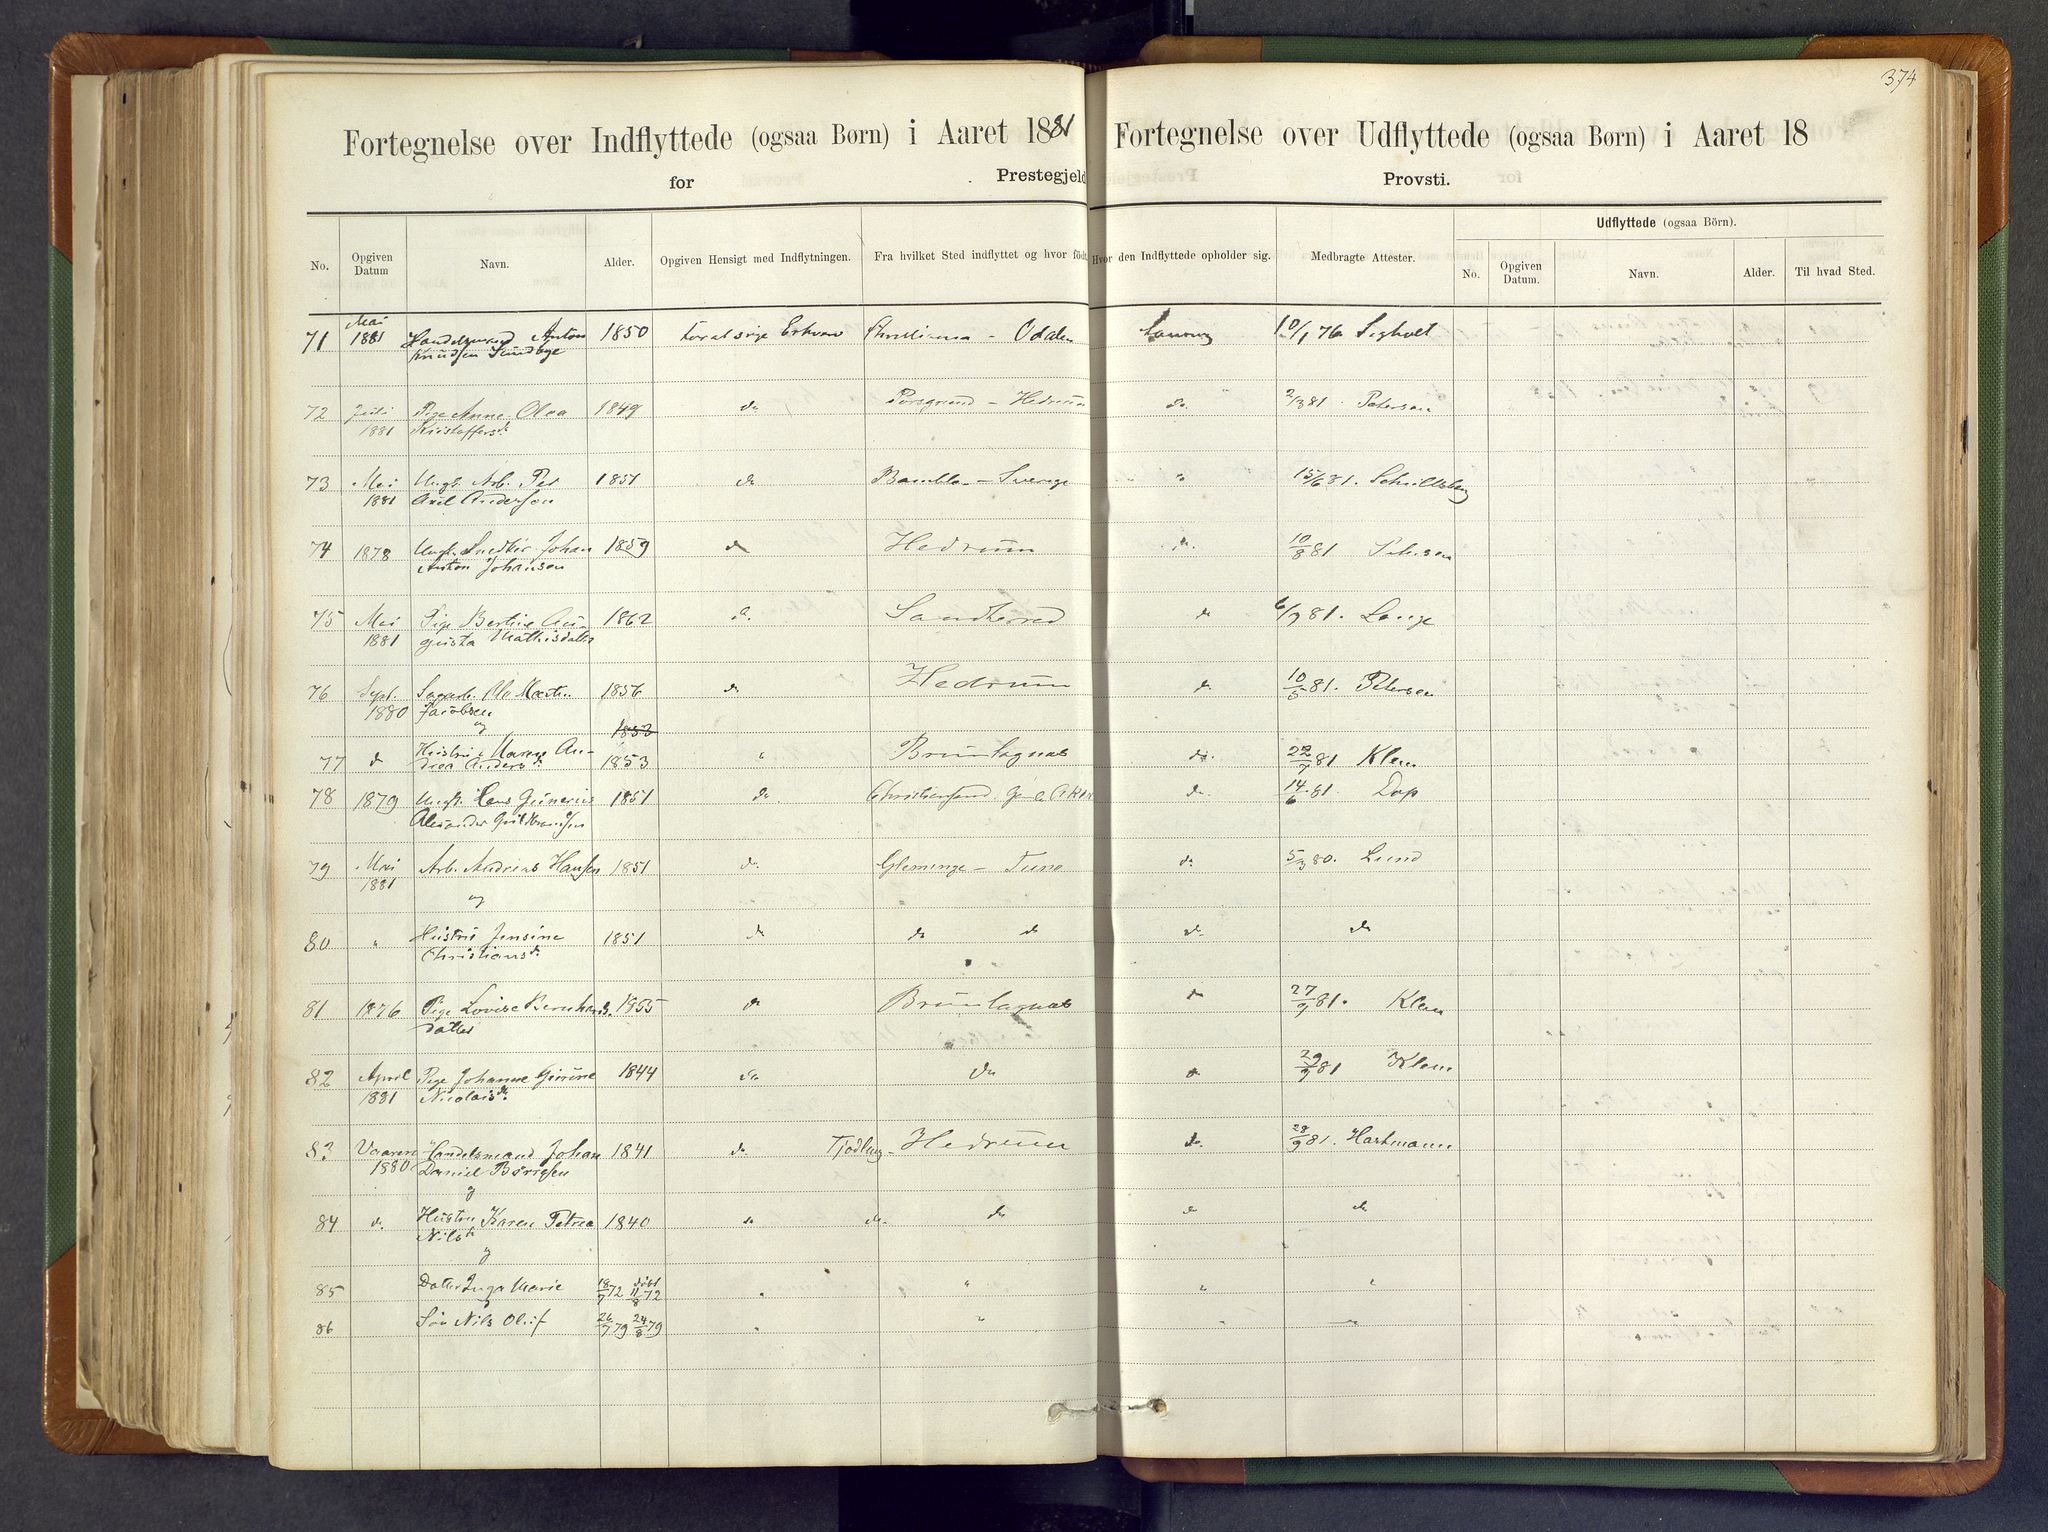 374
Fortegnelse over Indflyttede (ogsaa Børn) i Aaret 1881
for Prestegjeld
Fortegnelse over Udflyttede (ogsaa Børn) i Aaret 18
Provsti. for
No. Opgiven Datum Navn. Alder. Opgiven Hensigt med Indflytningen. Fra hvilket Sted indflyttet og hvor født. Hvor den Indflyttede opholder sig. Medbragte Attester.
Udflyttede (ogsaa Börn).
No. Opgiven Datum. Navn. Alder. Til hvad Sted.
71 Mai 1881 Handelsmand Anton 1850 for at søge Erhverv Odalen 10/1 76
Knudsen Sundbye
72 Juli Pige Anne Olea 1849 do Porsgrund - Hedrum do. 2/3 81 Petersen
1881 Kristoffersd.
73 Mai Ungk. Arb. Per 1851 do Bamble - Sverige " 15/6 81.
1881 Axel Andersen
74 1878 Ungk. Snedker Johan 1859 do Hedrum do. 10/8 81 Petersen
Anton Johansen
75 Mai Pige Bertine Au- 1862 d. Sandherred do 6/9 81. Lange
1881 gusta Mathisdatter
76 Sept. Ole Martin 1856 do Hedrum do 10/5 81. Petersen
1880 Jacobsen
og 1853
77 d Hustru Maren An- 1853 " Brunlagnæs do. 22/7 81 Klem
drea Andersd.
78 1879 Ungk. Hans Gunerius 1851 do Christiansand do. 14/6 81. Dop
Alexander Guldbrandsen
79 Mai Arb. Andreas Hansen 1851 do. Glemminge - Tune do 5/9 80. Lund
1881 og
80 " Hustru Jensine 1851 do do do do. do
Christiansd.
81 1876 Pige Lovise Bernhards. 1855 do Brunlagnæs do 27/9 81. Klem
datter
82 April Pige Johanne Gurine 1844 do do do 29/9 81 Klem
1881 Nicolaisd.
83 Vaaren Handelsmand Johan 1841 do Tjødling - Hedrum do. 28/9 81. Hartmann
1880 Daniel Børrigsen
og
84 do. Hustru Karen Petrea 1840 do do. do do do
Nilsd.
og
85 Datter Inga Marie 18/7 72 døbt 11/8 72 " " " "
86 Søn Nils Oluf 26/7 79 24/8 79 " " "